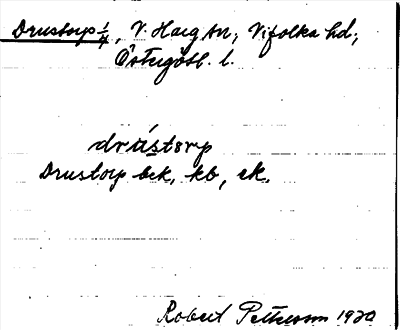 Drustorp 1/4, V. Harg sn, Vifolka hd,
Östergötl. l.
drústorp
Drustorp bek, kb, ek.
Robert Pettersson 1920